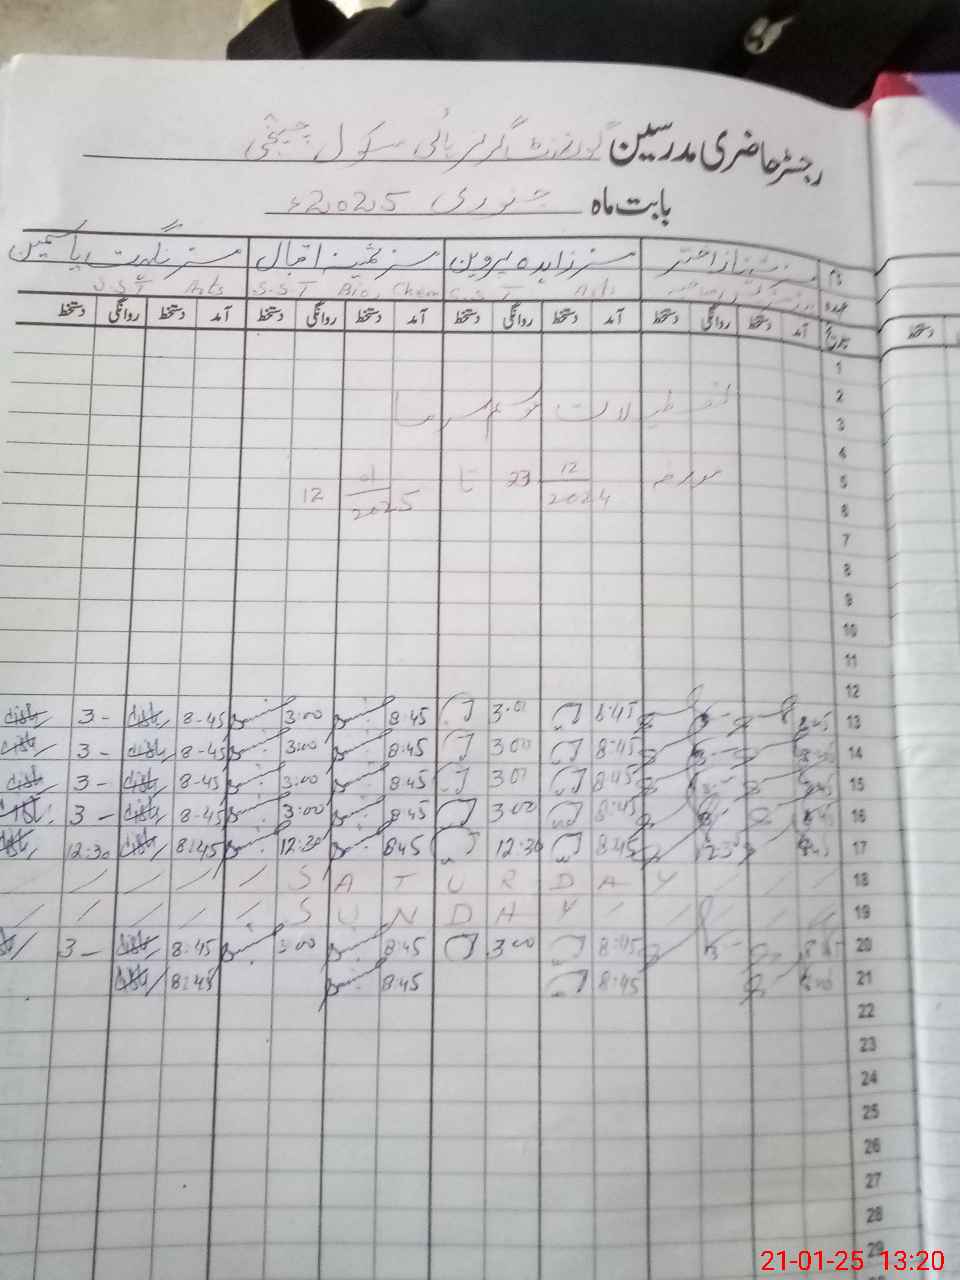 رجسٹر حاضری مدرسین گورنمنٹ گرلز ہائی سکول
بابت ماہ جنوری 2025ء
نام مسز شہناز اختر مسز زاہدہ پروین مسز ثمینہ اقبال مسز نگہت یاسمین
عہدہ S.S.T Arts S.S.T Bio, Chem S.S.T Arts
تاریخ آمد دستخط روانگی دستخط آمد دستخط روانگی دستخط آمد دستخط روانگی دستخط آمد دستخط روانگی دستخط
دستخط
1
2
تعطیلات موسم سرما
3
4
5 مورخہ 23 12/2024 تا 12 01/2025
6
7
8
9
10
11
12
13 8:45 8:45 3:00 8:45 3:00 8-45 3-
14 8:45 8:45 3:00 8:45 3:00 8-45 3-
15 8:45 8:45 3:00 8:45 3:00 8-45 3-
16 8:45 8:45 3:00 8:45 3:00 8-45 3-
17 8:45 12:30 8:45 12:30 845 12:30 8:45 12:30
18 SATURDAY
19 SUNDAY
20 8:45 8:45 3:00 8:45 3:00 8:45 3-
21 8:45 8:45 8:45
22
23
24
25
26
27
28
29
21-01-25 13:20